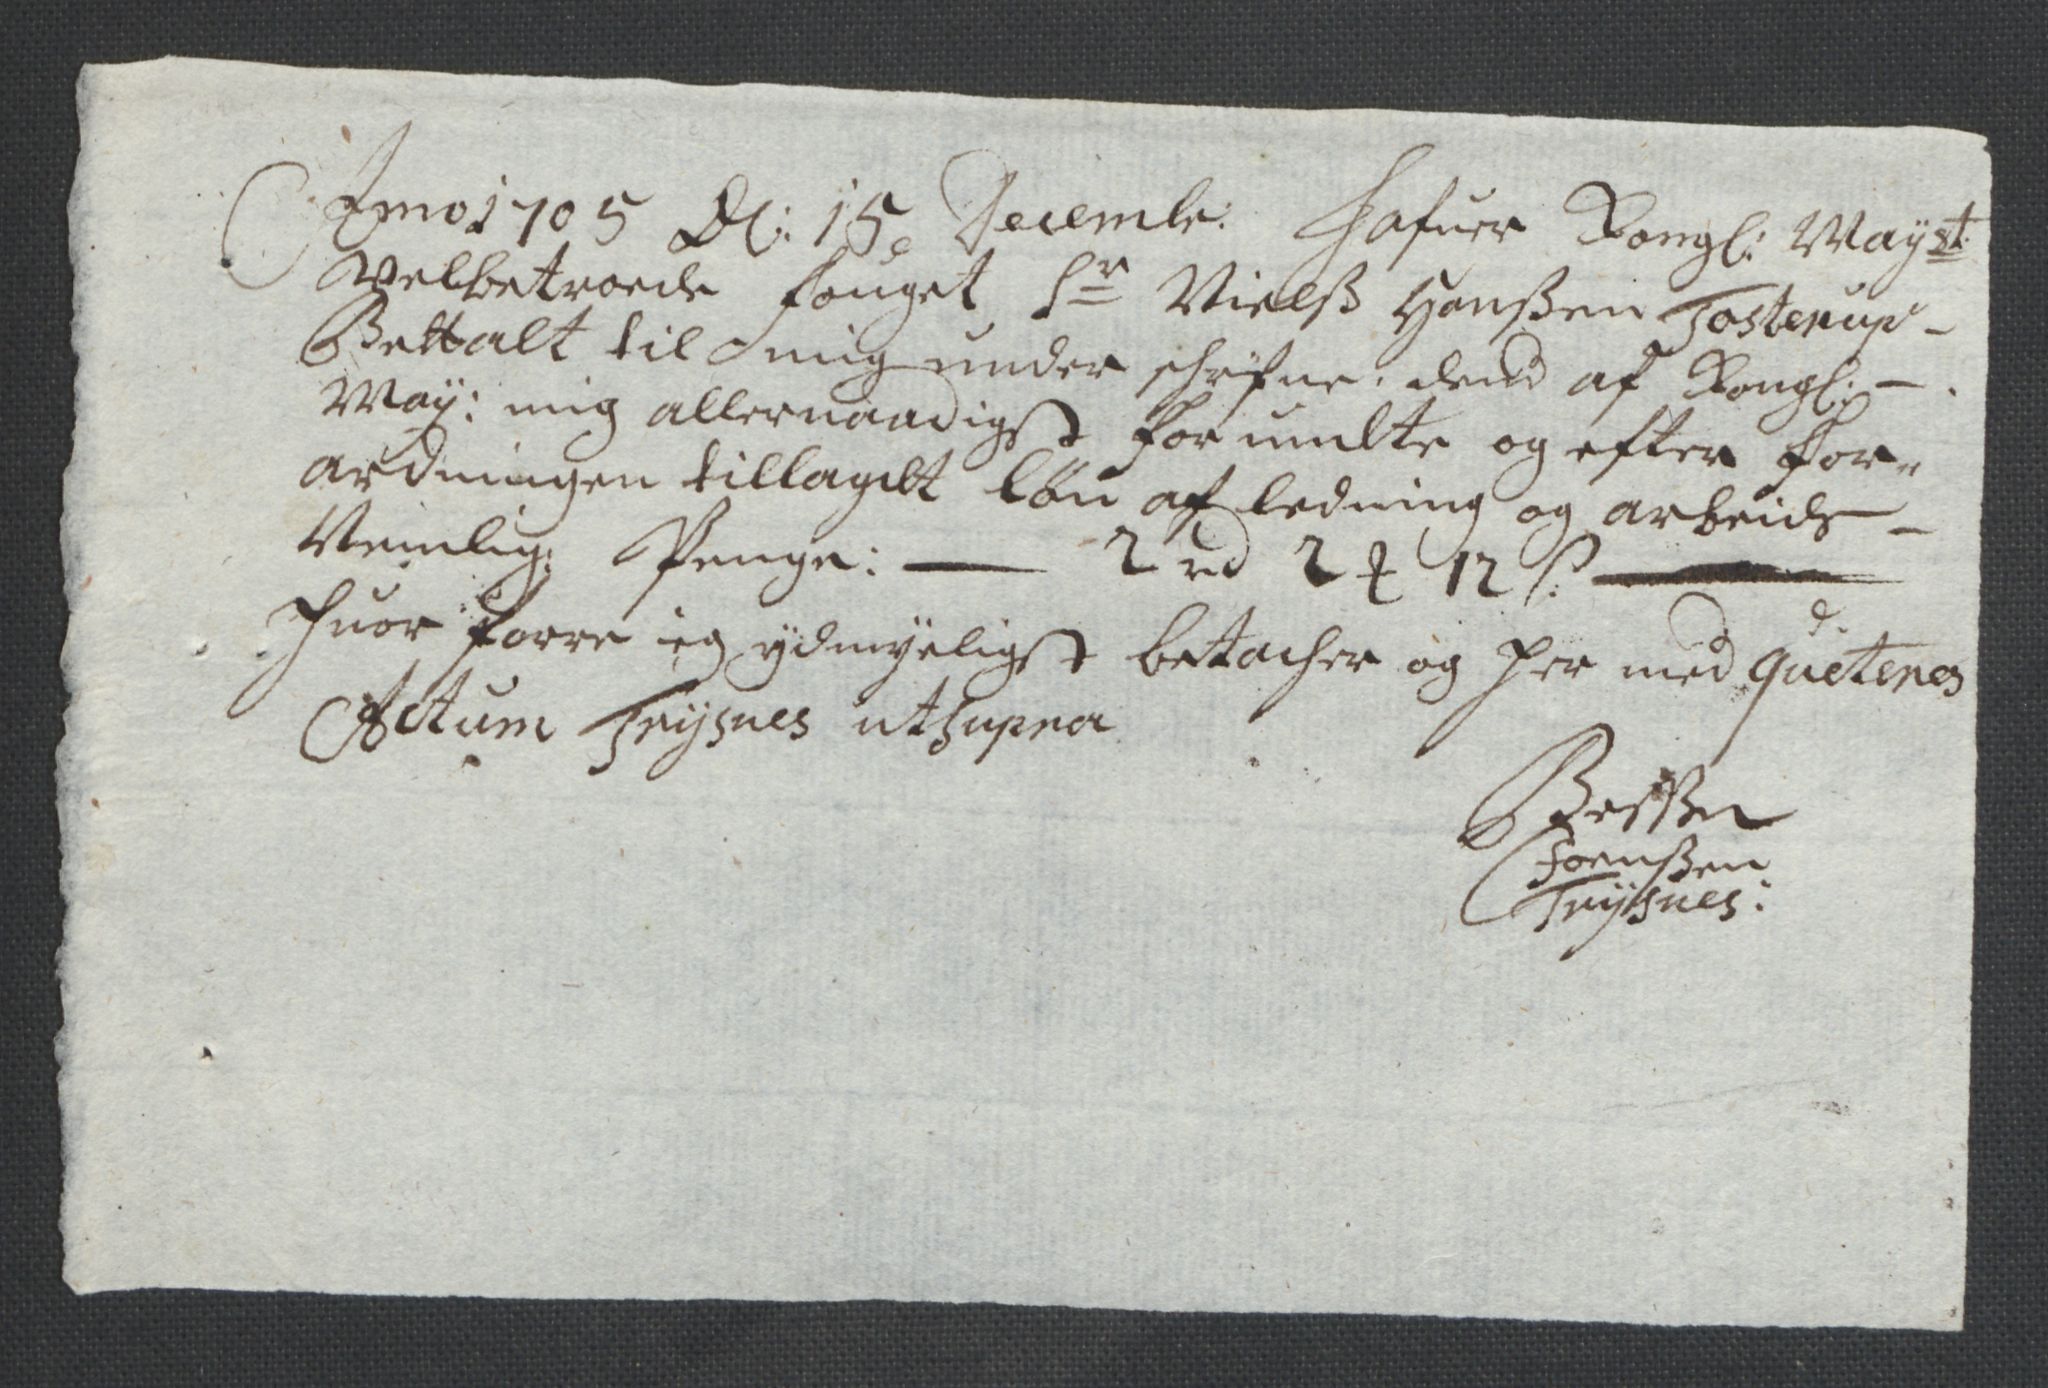 Anno 1705 Dl: 15 Decembr: Hafuer Kongl: Mayst
velbetroede fouget Sr Nielß Hanßen Tosterup –
Bettalt til mig under schrifne. dend af Kongl: –
May: mig allernaadigst forundte og efter for-
ordningen tillagdt løn af ledning og arbeids –
Nemlig: Penge: — 2 rd 2 ₰ 12 s: —
huor forre ieg ydmygeligst bettacher og her med quiteres
Actum Trysnes ut supra
Jenßen
Trysnes: